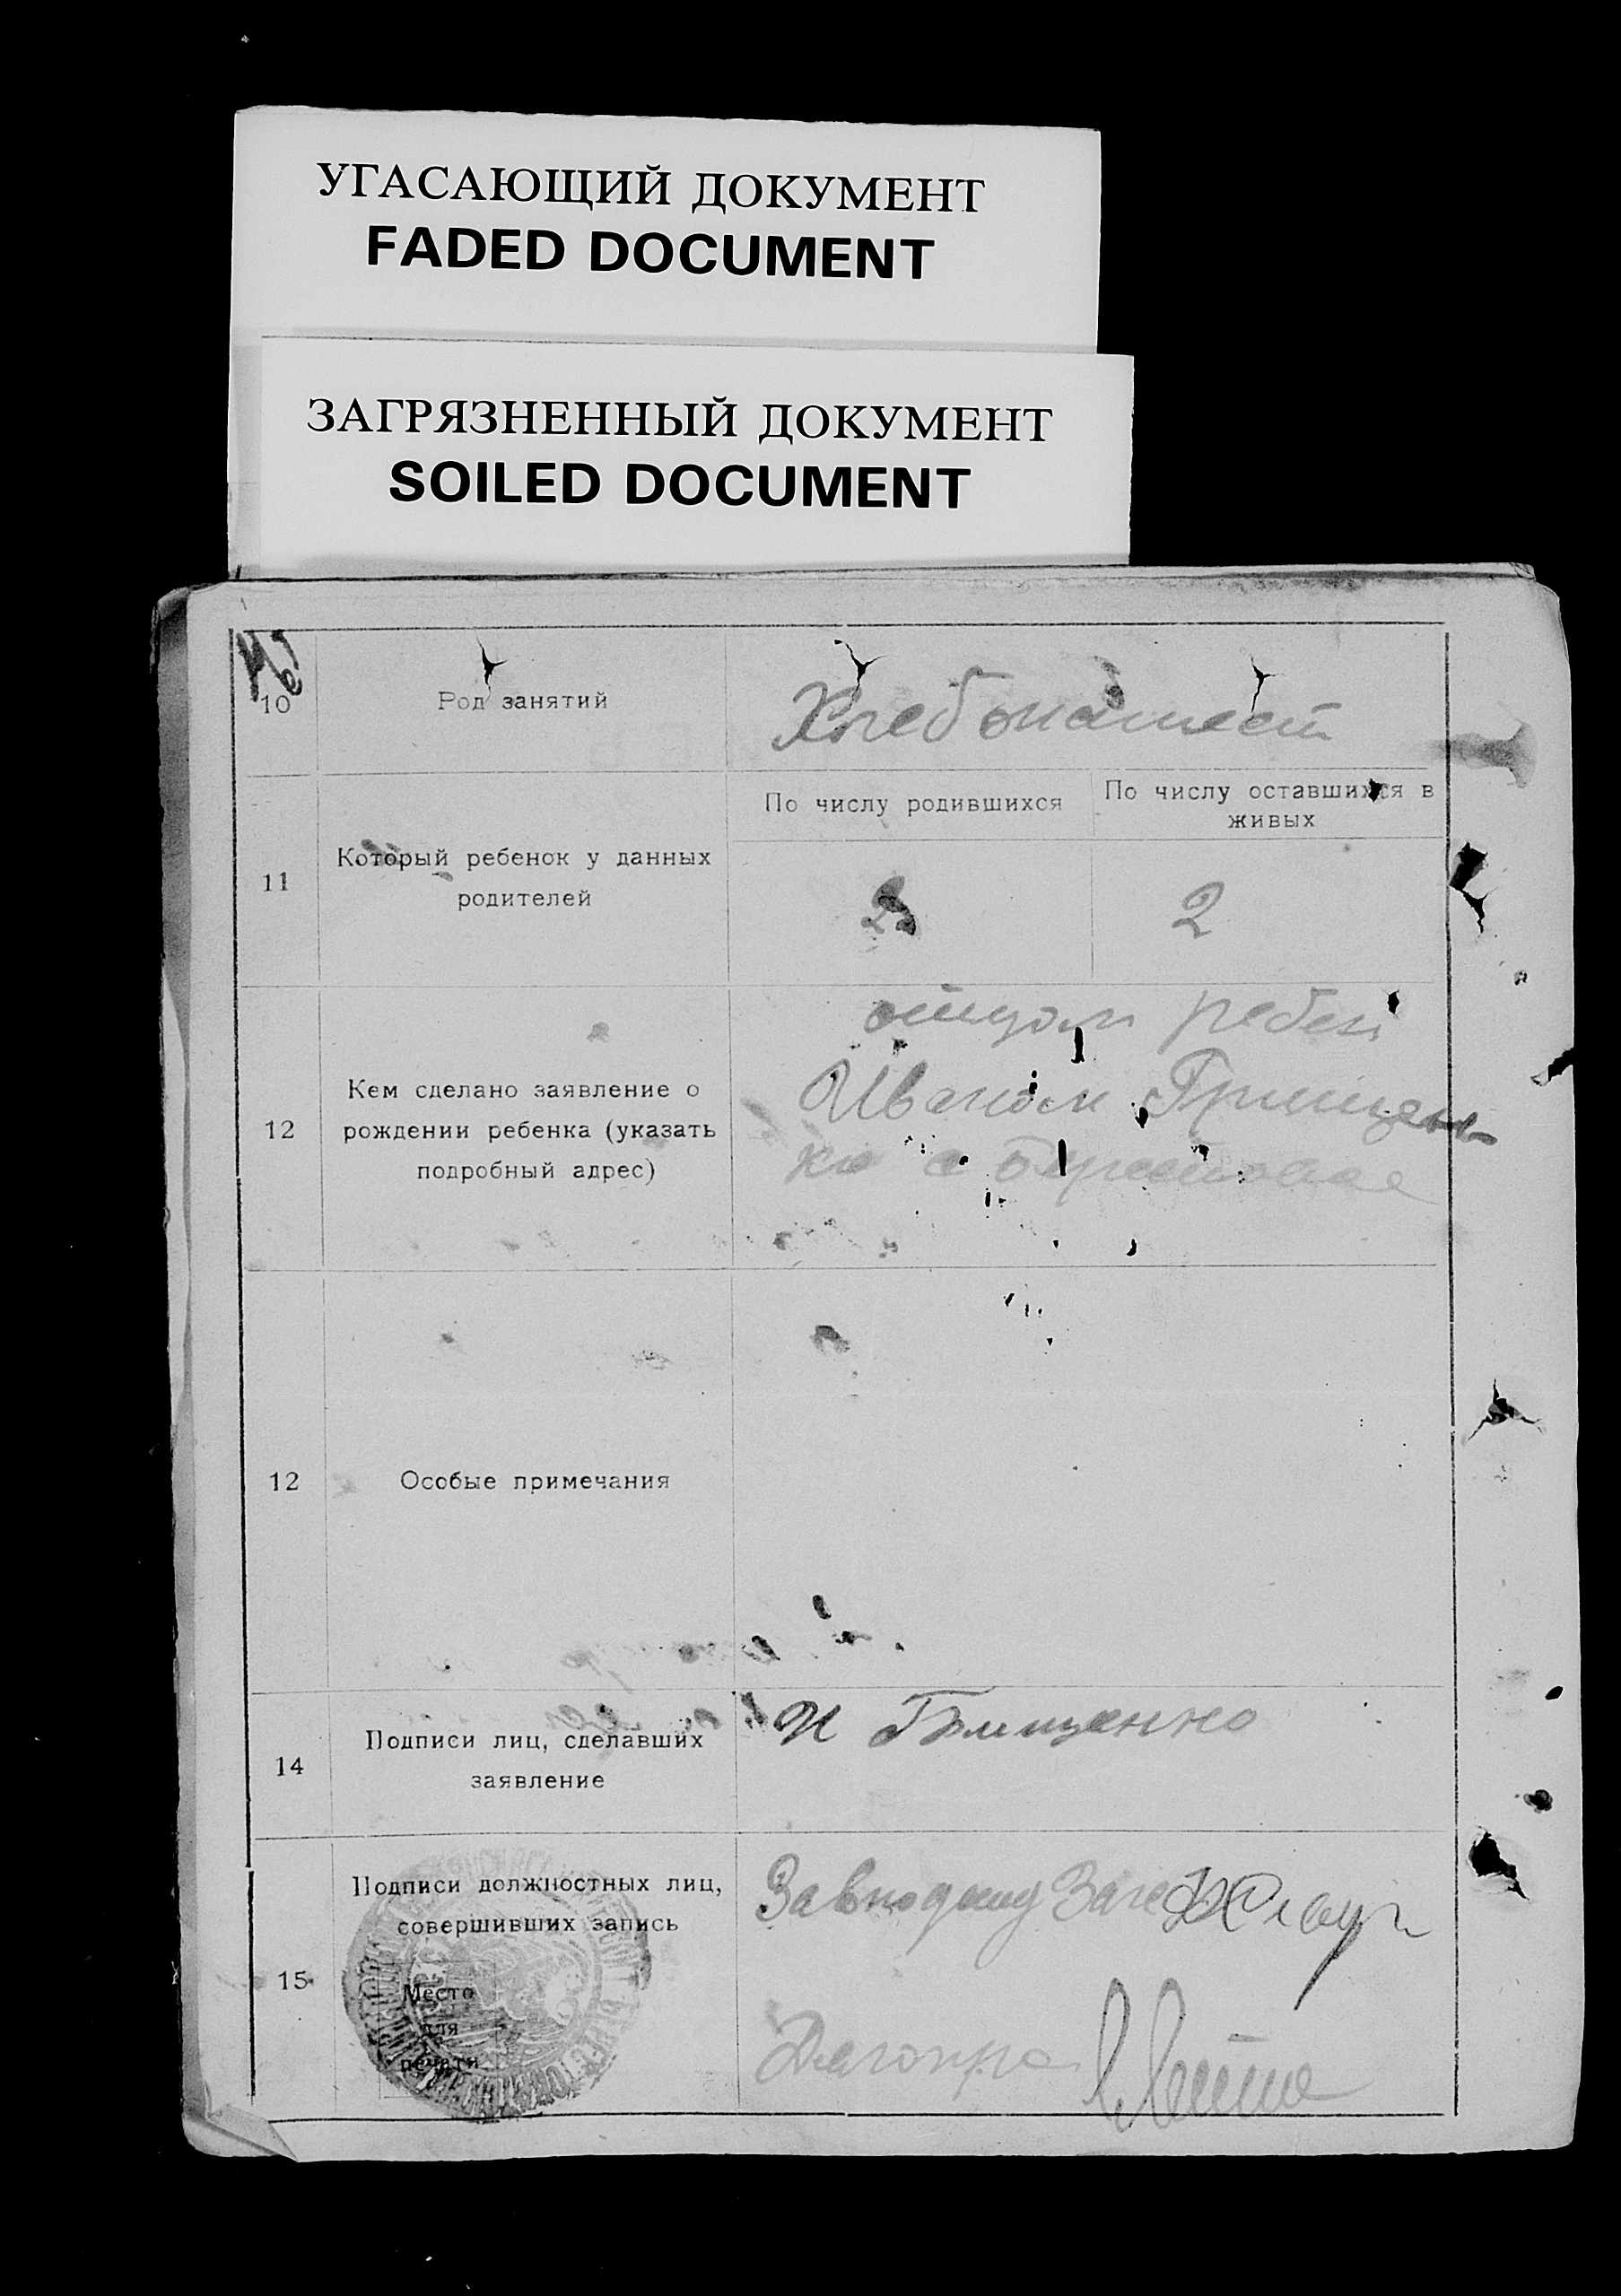 УГАСАЮЩИЙ ДОКУМЕНТ
FADED DOCUMENT
ЗАГРЯЗНЕННЫЙ ДОКУМЕНТ
SOILED DOCUMENT
10
Род занятий
Хлебопашест
11
Который ребенок у данных
родителей
По числу родившихся
По числу оставшихся в
живых
2
2
12
Кем сделано заявление о
рождении ребенка (указать
подробный адрес)
отцом ребен
Иваном Грищен-
ко с
12
Особые примечания
14
Подписи лиц, сделавших
заявление
И Грищенко
15
Подписи должностных лиц,
совершивших запись
Место
для
печати
Завподзаг